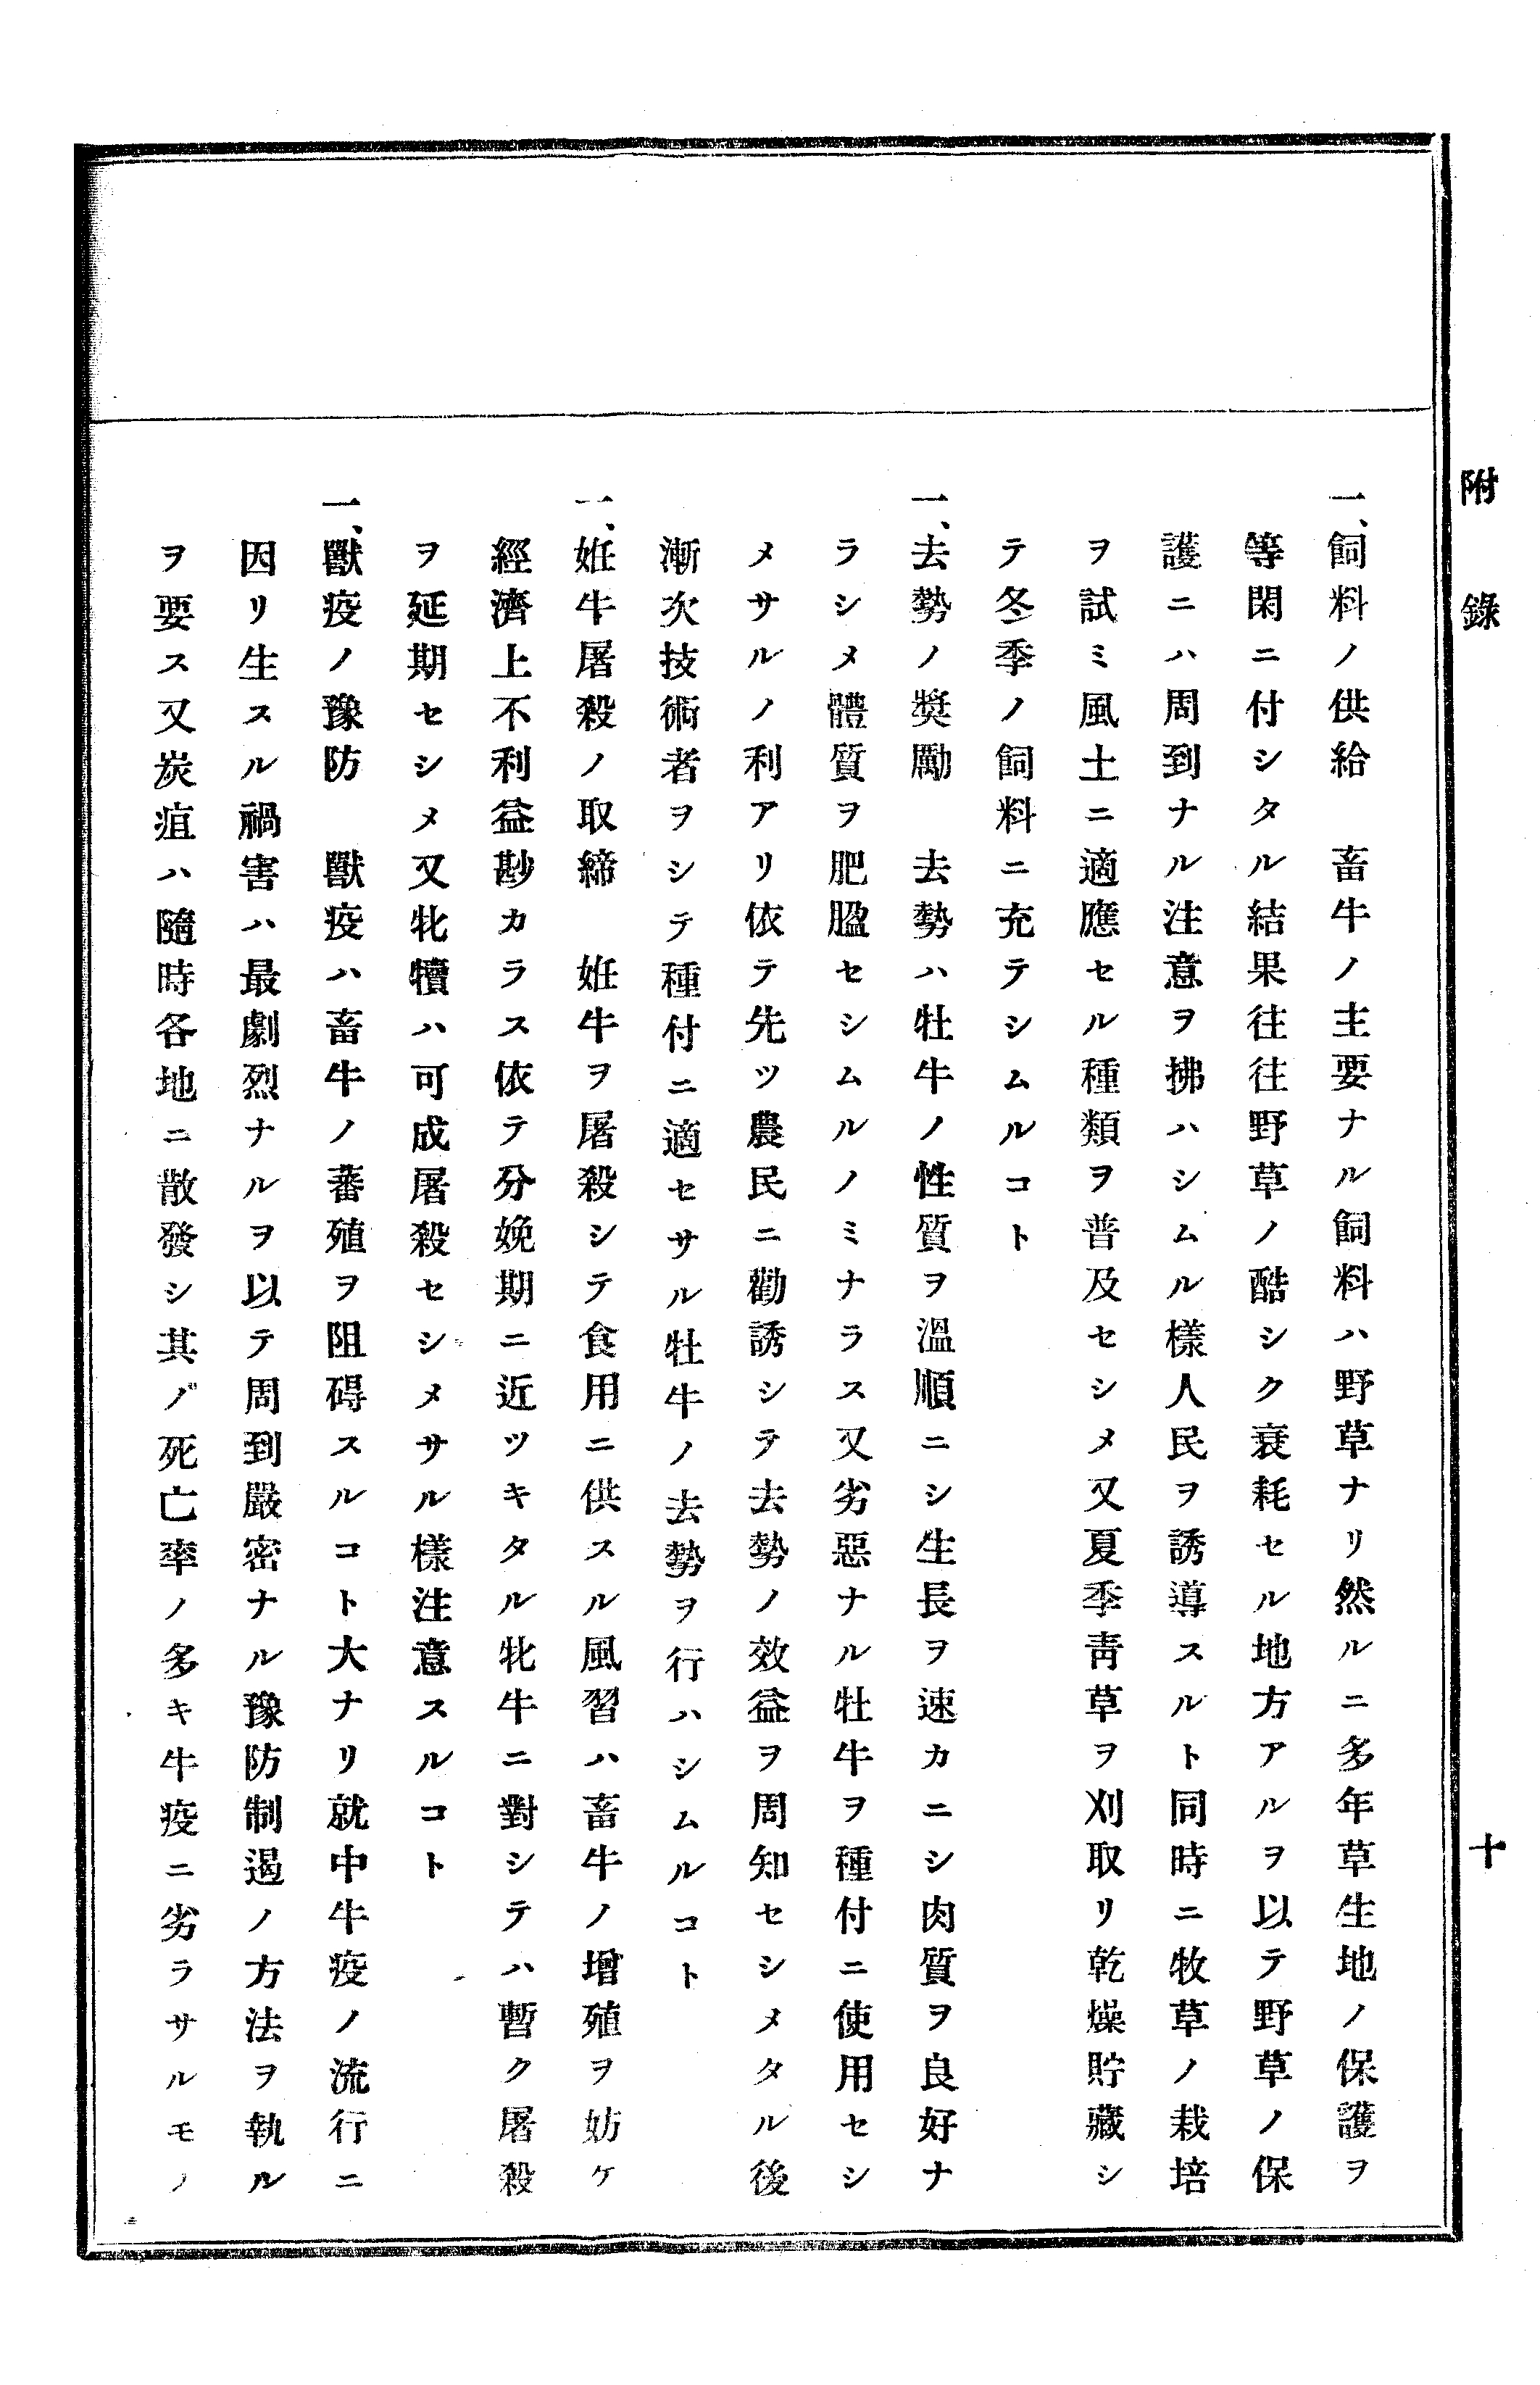 附錄
十
一、飼料ノ供給　畜牛ノ主要ナル飼料ハ野草ナリ然ルニ多年草生地ノ保護ヲ
等閑ニ付シタル結果往往野草ノ酷シク衰耗セル地方アルヲ以テ野草ノ保
護ニハ周到ナル注意ヲ拂ハシムル樣人民ヲ誘導スルト同時ニ牧草ノ栽培
ヲ試ミ風土ニ適應セル種類ヲ普及セシメ又夏季靑草ヲ刈取リ乾燥貯藏シ
テ冬季ノ飼料ニ充テシムルコト
一、去勢ノ奬勵　去勢ハ牡牛ノ性質ヲ溫順ニシ生長ヲ速カニシ肉質ヲ良好ナ
ラシメ體質ヲ肥膃セシムルノミナラス又劣惡ナル牡牛ヲ種付ニ使用セシ
メサルノ利アリ依テ先ツ農民ニ勸誘シテ去勢ノ效益ヲ周知セシメタル後
漸次技術者ヲシテ種付ニ適セサル牡牛ノ去勢ヲ行ハシムルコト
一、姙牛屠殺ノ取締　姙牛ヲ屠殺シテ食用ニ供スル風習ハ畜牛ノ增殖ヲ妨ケ
經濟上不利益尠カラス依テ分娩期ニ近ツキタル牝牛ニ對シテハ暫ク屠殺
ヲ延期セシメ又牝犢ハ可成屠殺セシメサル樣注意スルコト
一、獸疫ノ豫防　獸疫ハ畜牛ノ蕃殖ヲ阻碍スルコト大ナリ就中牛疫ノ流行ニ
因リ生スル禍害ハ最劇烈ナルヲ以テ周到嚴密ナル豫防制遏ノ方法ヲ執ル
ヲ要ス又炭疽ハ隨時各地ニ散發シ其ノ死亡率ノ多キ牛疫ニ劣ラサルモノ